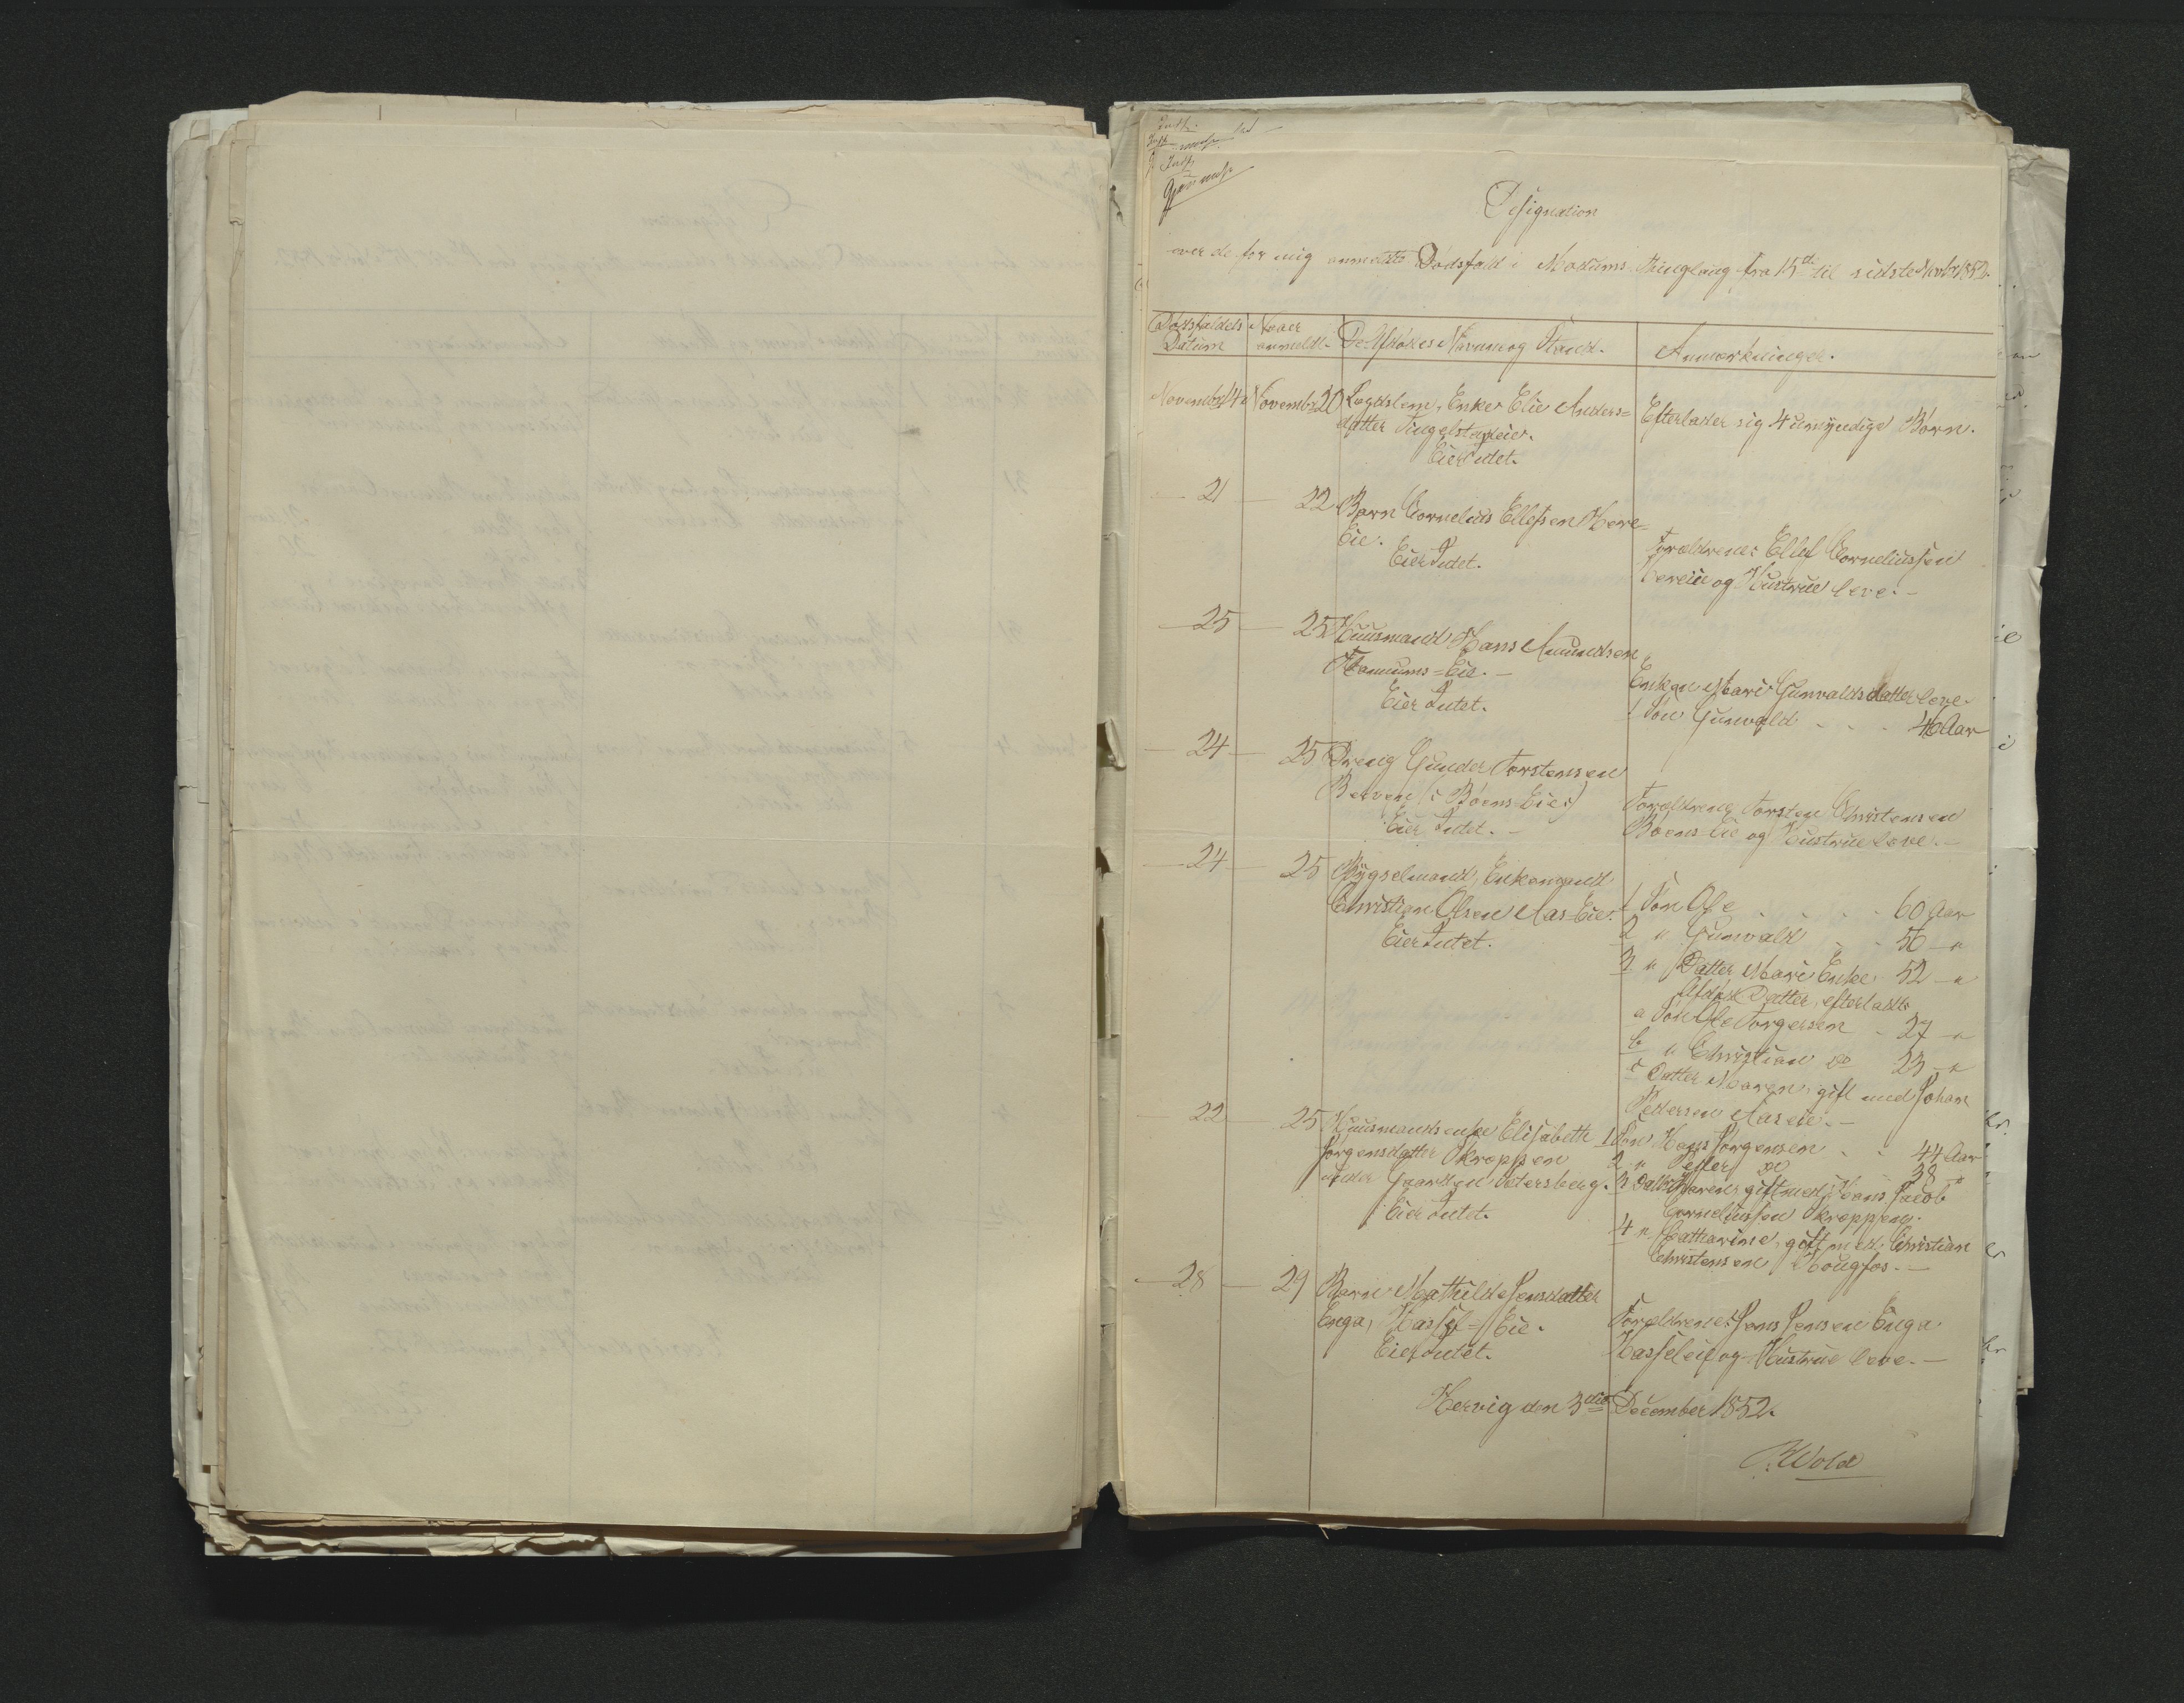 Designation
over de for mig anmeldte Dødsfald i Modums Thinglaug fra 15de til sidste Novbr 1852.
Dødsfaldets Datum
Naar anmeldt.
De Afdødes Navne og Stand.
Anmærkninger.
November 14
November 20
Lægdslem, Enke Elie Anders=
datter Tingelstadeie.
Eier Intet.
Efterlader sig 4 umyndige Børn.
21
22
Barn Cornelius Ellefsen Here=
Eie.
Eier Intet.
Forældrene Ellef Corneliussen
Hereeie og Hustrue leve. -
25
25
Huusmand Hans Amundsen
Eie. -
Eier Intet.
Enken Mari Gunvaldsdatter leve.
1 Søn Gunvald - - - 46 Aar
24
25
Dreng Gunder Torstensen
Berven (: Bøens=Eie :)
Eier Intet. -
Forældrene Torsten Christensen
Bøens=Eie og Hustrue leve. -
24
25
Bygselmand, Enkemand
Christian Olsen Aas=Eie.
Eier Intet.
1 Søn Ole - - - - 60 Aar
2 " Gunvald - - 56 - "
3 " Datter Mari Enke 52 - "
Afdød Datter, efterladt
a Søn Ole Torgersen - 27 - "
b " Christian do 23 - "
c Datter Maren, gift med Johan
Pedersen Aaseie. -
22
25
Huusmandsenke Elisabeth
Jørgensdatter Skroppen
under Gaarden Petersberg.
Eier Intet.
1 Søn Hans Jørgensen - - 44 Aar
2 " Peder do 38 "
3 Datter Karen, gift med Hans Jacob
Corneliussen Skroppen.
4 " Catharine, gift med Christian
Christensen Hougfos. -
28
29
Barn Mathilde Jensdatter
Enga, Hassel=Eie.
Eier Intet.
Forældrene Jens Jensen Enga
Hasseleie og Hustrue leve. -
Hervig den 3die December 1852.
Wold